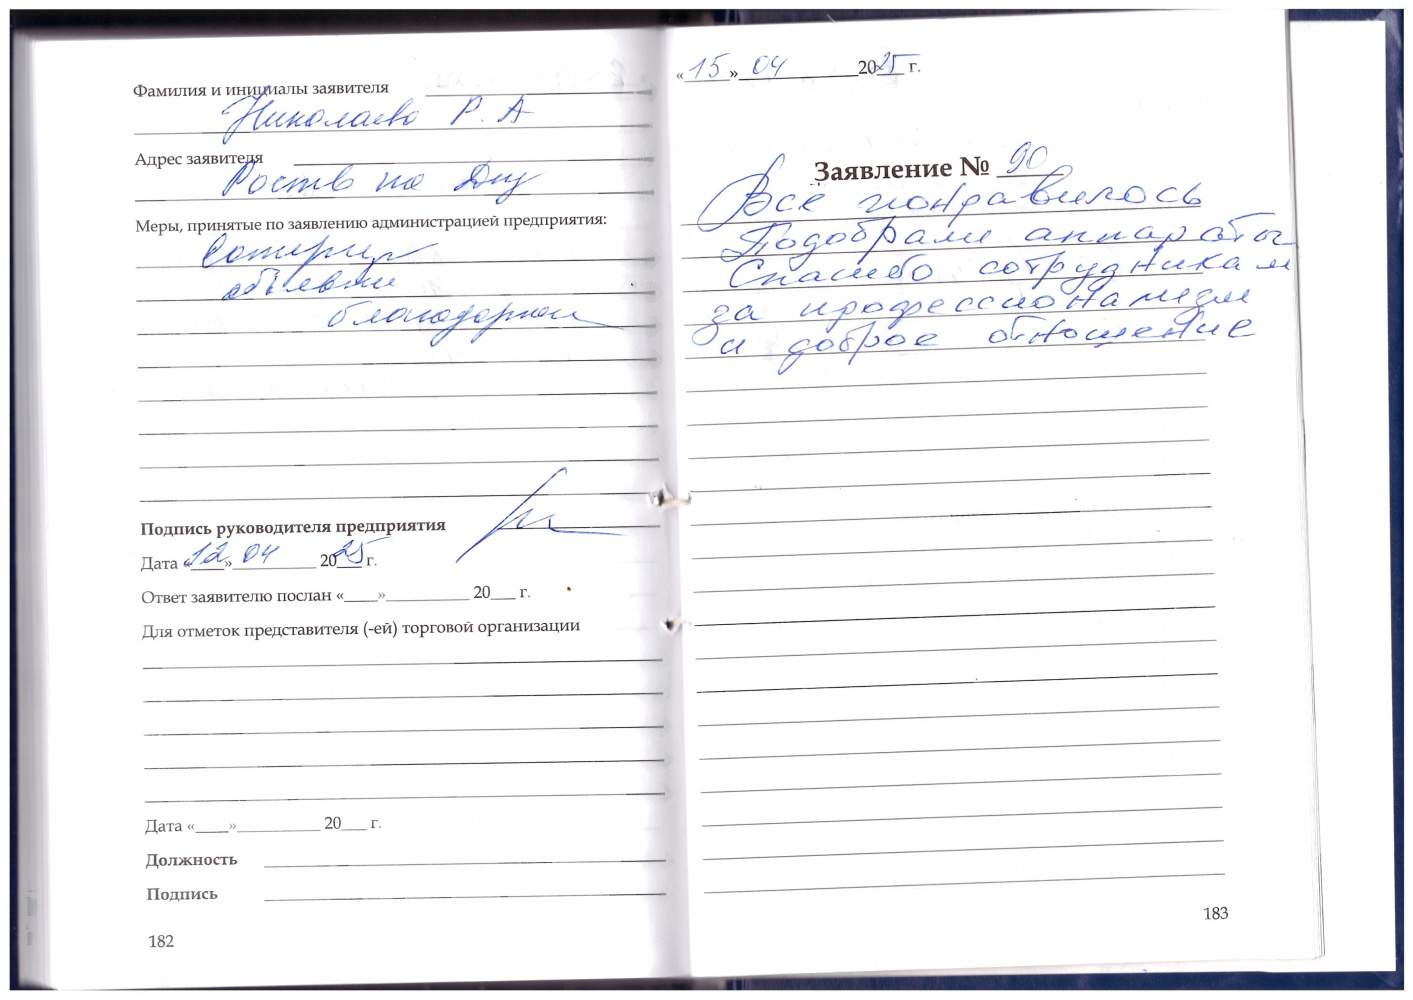 Фамилия и инициалы заявителя
Николаева Р. А
Адрес заявителя
Роств на Дну
Меры, принятые по заявлению администрацией предприятия:
объявлен
благодарнос
Подпись руководителя предприятия
Дата «12» 04 2025 г.
Ответ заявителю послан «____»__________ 20___ г.
Для отметок представителя (-ей) торговой организации
Дата «____»__________ 20___ г.
Должность
Подпись
182
«15» 04 2025 г.
Заявление № 90
Всё понравилось
Подобрали аппараты
Спасибо сотрудникам
за профессионализм
и доброе отношение
183